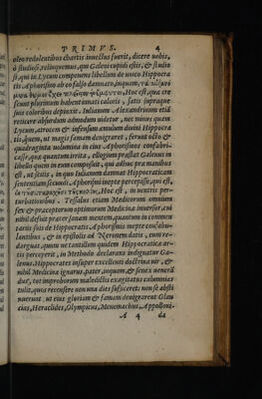 PRIMVS. 4
oleo redolentibus chartis invectus fuerit, dicere nobis,
ô studiosi, relinquemus, qui Galeni cupidi estis, & illius
est, qui in Lycum componens libellum de unico Hippocra
tis Aphorismo ab eo falso damnato, inquit,
Hoc est, qua cre
scunt plurimum habent innati caloris, satis supraque
suis coloribus depinxit. Iulianum Alexandrinum etiã
reticere absurdum admodum videtur, nec minus quam
Lycum, atrocem & infensum animum divini Hippocra
tis, quem, ut magis famam denigraret, ferunt octo &
quadraginta volumina in eius Aphorismos confabri-
casse, quae quantum irrita, ellogium praestat Galenus in
libello quem in eum composuit, qui adhuc prae manibus
est, ut scitis, in quo Iulianum damnat Hippocraticam
sententiam secundi Aphorismi inepte percepisse, quae est,
Hoc est, in ventris per-
turbationibus. Tessalus etiam Medicorum omnium
sex & praeceptorum optimorum Medicina inversor, cui
nihil defuit praeter sanam mentem, quantum in commen
tariis suis de Hippocratis Aphorismis inepte confabu-
lantibus, & in epistolis ad Neronem datis, eum re-
darguat, quum ne tantillum quidem Hippocratica ar-
tis perceperit, in Methodo declarare indignatur Ga-
lenus. Hippocrates insuper excellenti doctrina vir, &
nihil Medicina ignarus, pater, inquam & senex venerã
dus, tot improborum maledictis exagitatus calumnias
tulit, quas recensere non una dies sufficeret: non se absti
nuerunt ut eius gloriam & famam denigrarent Glau
cius, Heraclides, Olympicus, Menemachus, Appolloni-
A 4 da